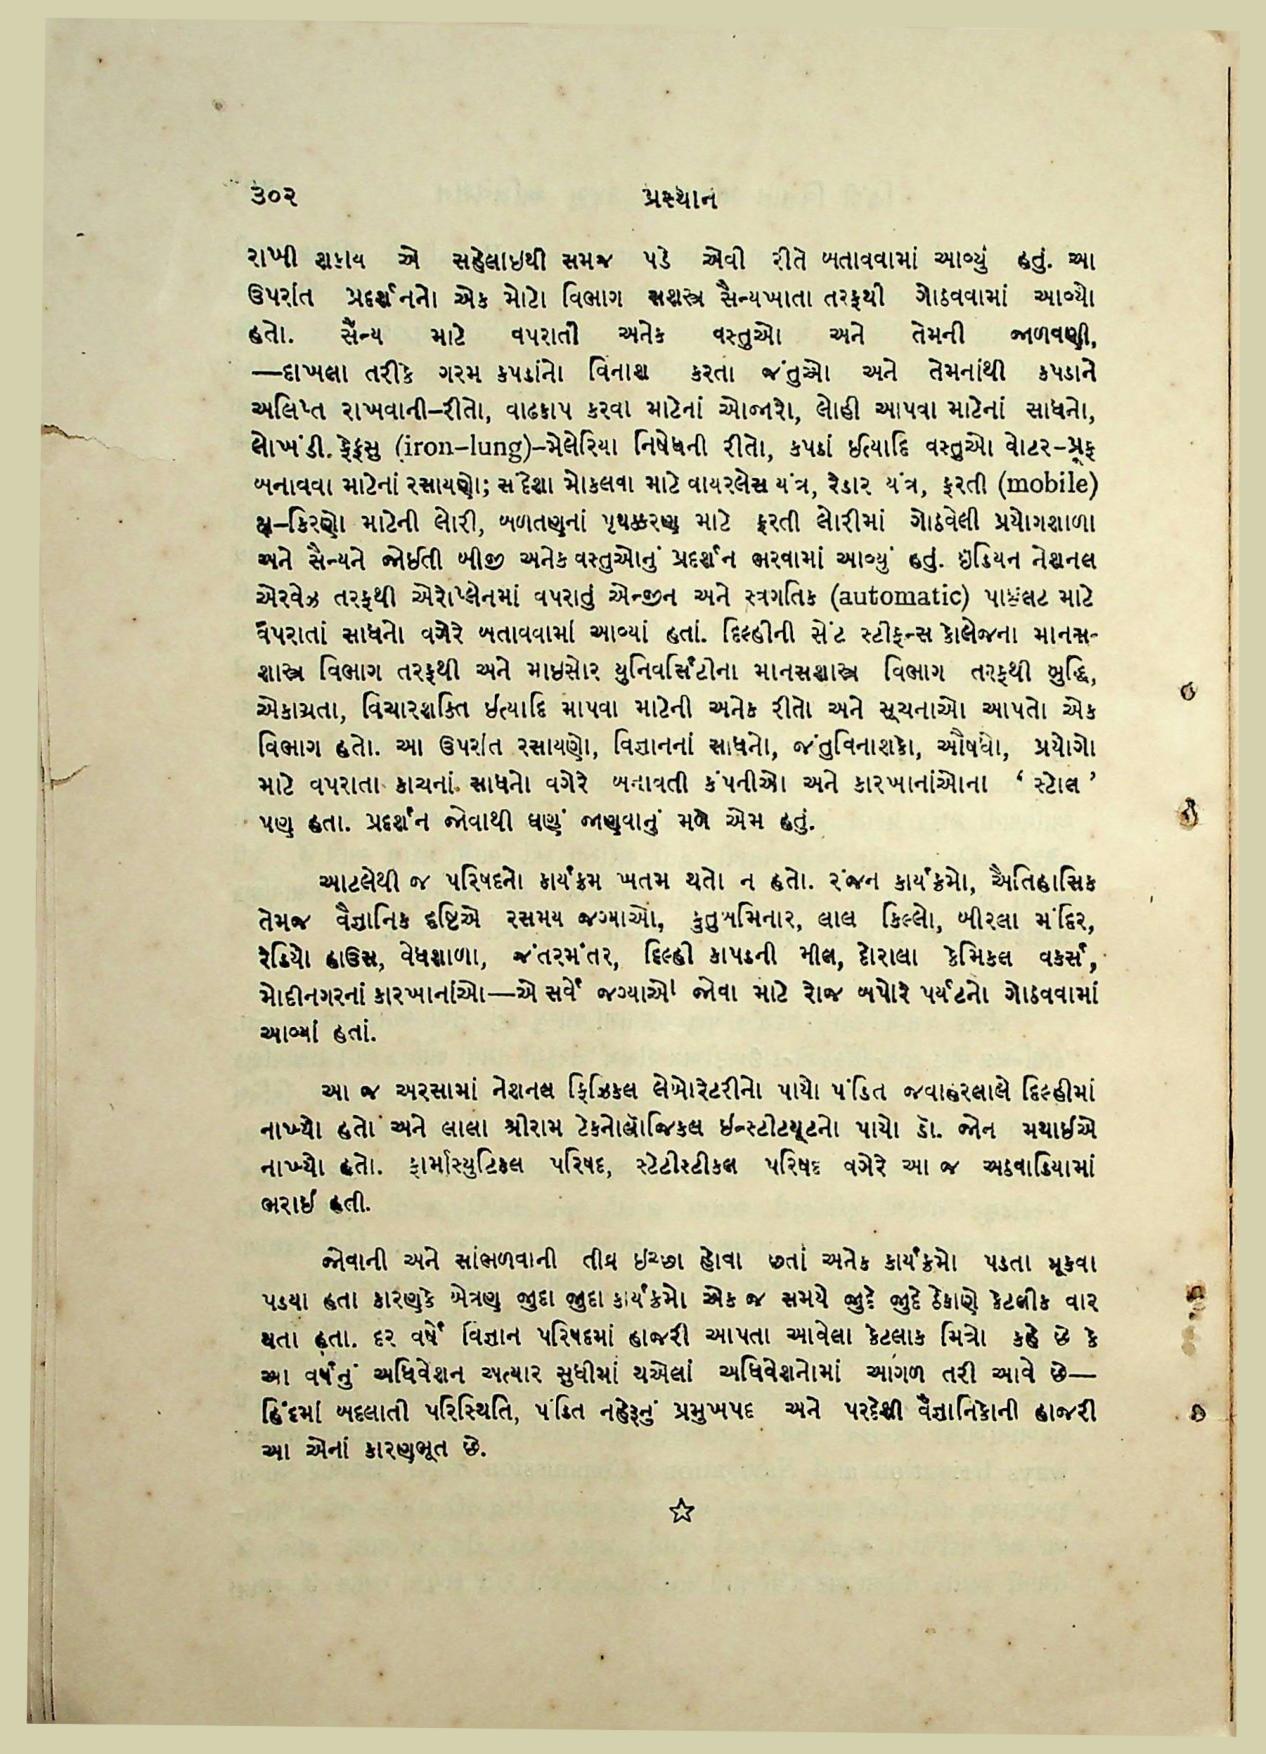 ૩૦૨ પ્રસ્થાન
રાખી શકાય એ સહેલાઇથી સમજ પડે એવી રીતે બતાવવામાં આવ્યું હતું. આ
ઉપરાંત પ્રદર્શનનો એક મોટો વિભાગ સશસ્ત્ર સૈન્યખાતા તરફથી ગોઠવવામાં આવ્યો
હતો. સૈન્ય માટે વપરાતી અનેક વસ્તુઓ અને તેમની જાળવણી,
—દાખલા તરીકે ગરમ કપડાંનો વિનાશ કરતા જંતુઓ અને તેમનાંથી કપડાને
અલિપ્ત રાખવાની–રીતો, વાઢકાપ કરવા માટેનાં ઓજારો, લોહી આપવા માટેનાં સાધનો,
લોખંડી ફેફસુ (iron–lung)–મેલેરિયા નિષેધની રીતો, કપડાં ઈત્યાદિ વસ્તુઓ વોટર–પ્રૂફ
બનાવવા માટેનાં રસાયણો; સંદેશા મોકલવા માટે વાયરલેસ યંત્ર, રેડાર યંત્ર, ફરતી (mobile)
ક્ષ–કિરણો માટેની લોરી, બળતણનાં પૃથક્કરણ માટે ફરતી લોરીમાં ગોઠવેલી પ્રયોગશાળા
અને સૈન્યને જોઈતી બીજી અનેક વસ્તુઓનું પ્રદર્શન ભરવામાં આવ્યું હતું. ઇંડિયન નેશનલ
એરવેઝ તરફથી એરોપ્લેનમાં વપરાતું એન્જીન અને સ્વગતિક (automatic) પાઇલટ માટે
વપરાતાં સાધનો વગેરે બતાવવામાં આવ્યાં હતાં. દિલ્હીની સેંટ સ્ટીફન્સ કોલેજના માનસ-
શાસ્ત્ર વિભાગ તરફથી અને માઇસોર યુનિવર્સિટીના માનસશાસ્ત્ર વિભાગ તરફથી બુદ્ધિ,
એકાગ્રતા, વિચારશક્તિ ઈત્યાદિ માપવા માટેની અનેક રીતો અને સૂચનાઓ આપતો એક
વિભાગ હતો. આ ઉપરાંત રસાયણો, વિજ્ઞાનનાં સાધનો, જંતુવિનાશકો, ઔષધો, પ્રયોગો
માટે વપરાતા કાચનાં સાધનો વગેરે બનાવતી કંપનીઓ અને કારખાનાંઓના ‘ સ્ટોલ ’
પણ હતા. પ્રદર્શન જોવાથી ઘણું જાણવાનું મળે એમ હતું.
આટલેથી જ પરિષદનો કાર્યક્રમ ખતમ થતો ન હતો. રંજન કાર્યક્રમો, ઐતિહાસિક
તેમજ વૈજ્ઞાનિક દૃષ્ટિએ રસમય જગ્યાઓ, કુતુબમિનાર, લાલ કિલ્લો, બીરલા મંદિર,
રેડિયો હાઉસ, વેધશાળા, જંતરમંતર, દિલ્હી કાપડની મીલ, દોરાલા કેમિકલ વર્કસ,
મોદીનગરનાં કારખાનાંઓ—એ સર્વે જગ્યાઓ જોવા માટે રોજ બપોરે પર્યટનો ગોઠવવામાં
આવ્યાં હતાં.
આ જ અરસામાં નેશનલ ફિઝિકલ લેબોરેટરીનો પાયો પંડિત જવાહરલાલે દિલ્હીમાં
નાખ્યો હતો અને લાલા શ્રીરામ ટેકનોલૉજિકલ ઇન્સ્ટીટ્યૂટનો પાયો ડૉ. જોન મથાઈએ
નાખ્યો હતો. ફાર્માસ્યુટિકલ પરિષદ, સ્ટેટીસ્ટીકલ પરિષદ વગેરે આ જ અઠવાડિયામાં
ભરાઈ હતી.
જોવાની અને સાંભળવાની તીવ્ર ઇચ્છા હોવા છતાં અનેક કાર્યક્રમો પડતા મૂકવા
પડયા હતા કારણકે બેત્રણ જુદા જુદા કાર્યક્રમો એક જ સમયે જુદે જુદે ઠેકાણે કેટલીક વાર
થતા હતા. દર વર્ષે વિજ્ઞાન પરિષદમાં હાજરી આપતા આવેલા કેટલાક મિત્રો કહે છે કે
આ વર્ષનું અધિવેશન અત્યાર સુધીમાં થએલાં અધિવેશનોમાં આગળ તરી આવે છે—
હિંદમાં બદલાતી પરિસ્થિતિ, પંડિત નહેરૂનું પ્રમુખપદ અને પરદેશી વૈજ્ઞાનિકોની હાજરી
આ એનાં કારણભૂત છે.